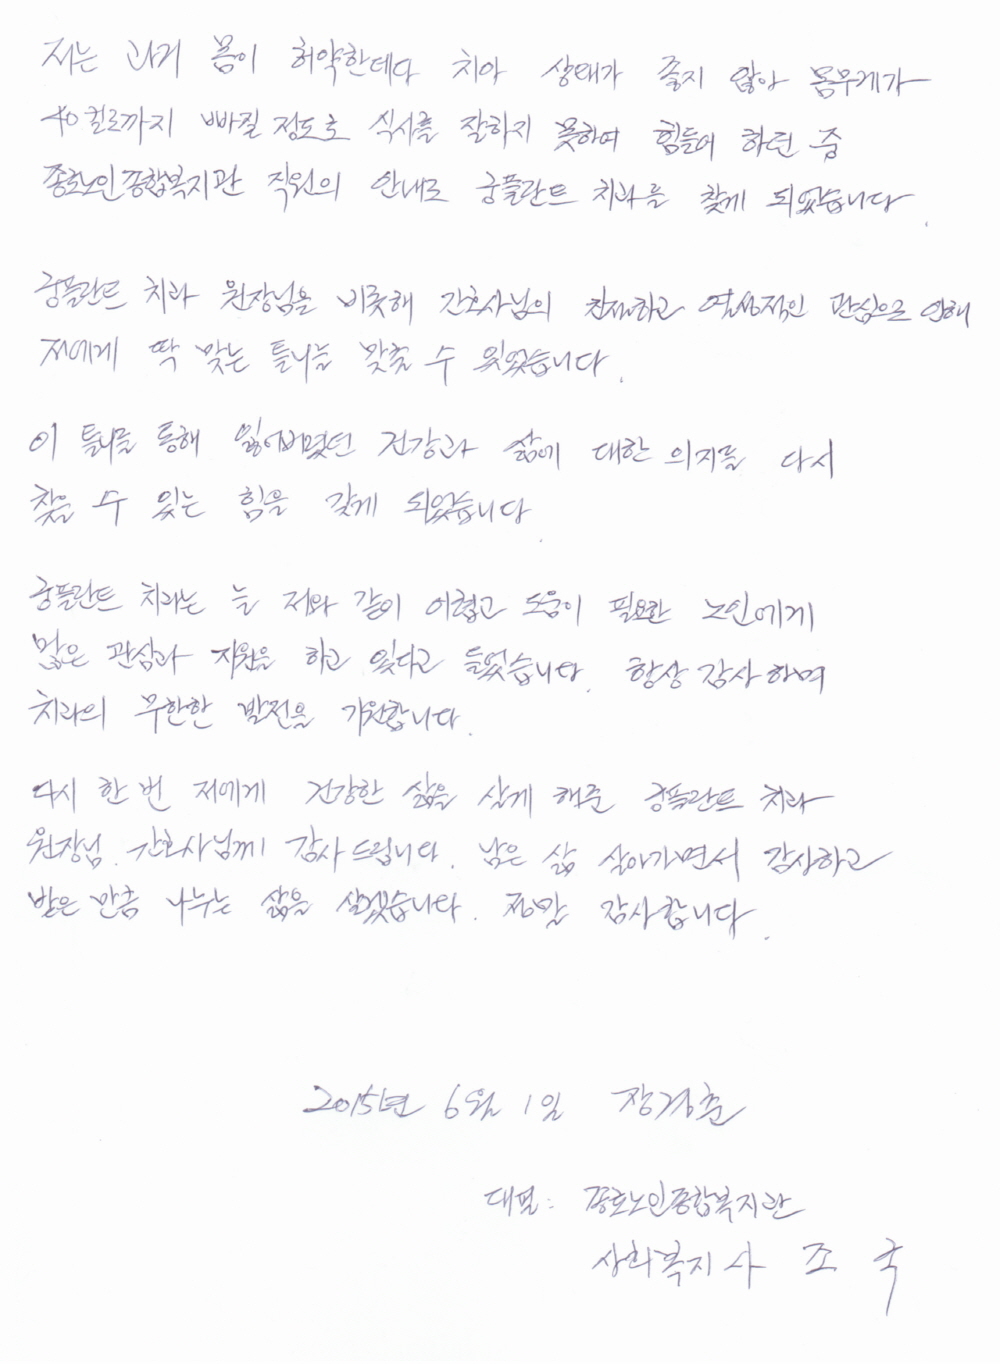 저는 과거 몸이 허약한데다 치아 상태가 좋지 않아 몸무게가
40킬로까지 빠질 정도로 식사를 잘하지 못하여 힘들어 하던 중
종로노인종합복지관 직원의 안내로 궁플란트 치과를 찾게 되었습니다.
궁플란트 치과 원장님을 비롯해 간호사님의 친절하고 열성적인 관심으로 인해
저에게 딱 맞는 틀니를 맞출 수 있었습니다.
이 틀니를 통해 잃어버렸던 건강과 삶에 대한 의지를 다시
찾을 수 있는 힘을 갖게 되었습니다.
궁플란트 치과는 늘 저와 같이 어렵고 도움이 필요한 노인에게
많은 관심과 지원을 하고 있다고 들었습니다. 항상 감사하며
치과의 무한한 발전을 기원합니다.
다시 한 번 저에게 건강한 삶을 살게 해준 궁플란트 치과
원장님, 간호사님께 감사드립니다. 남은 삶 살아가면서 감사하고
받은 만큼 나누는 삶을 살겠습니다. 정말 감사합니다.
2015년 6월 1일
대필: 종로노인종합복지관
사회복지사 조 국